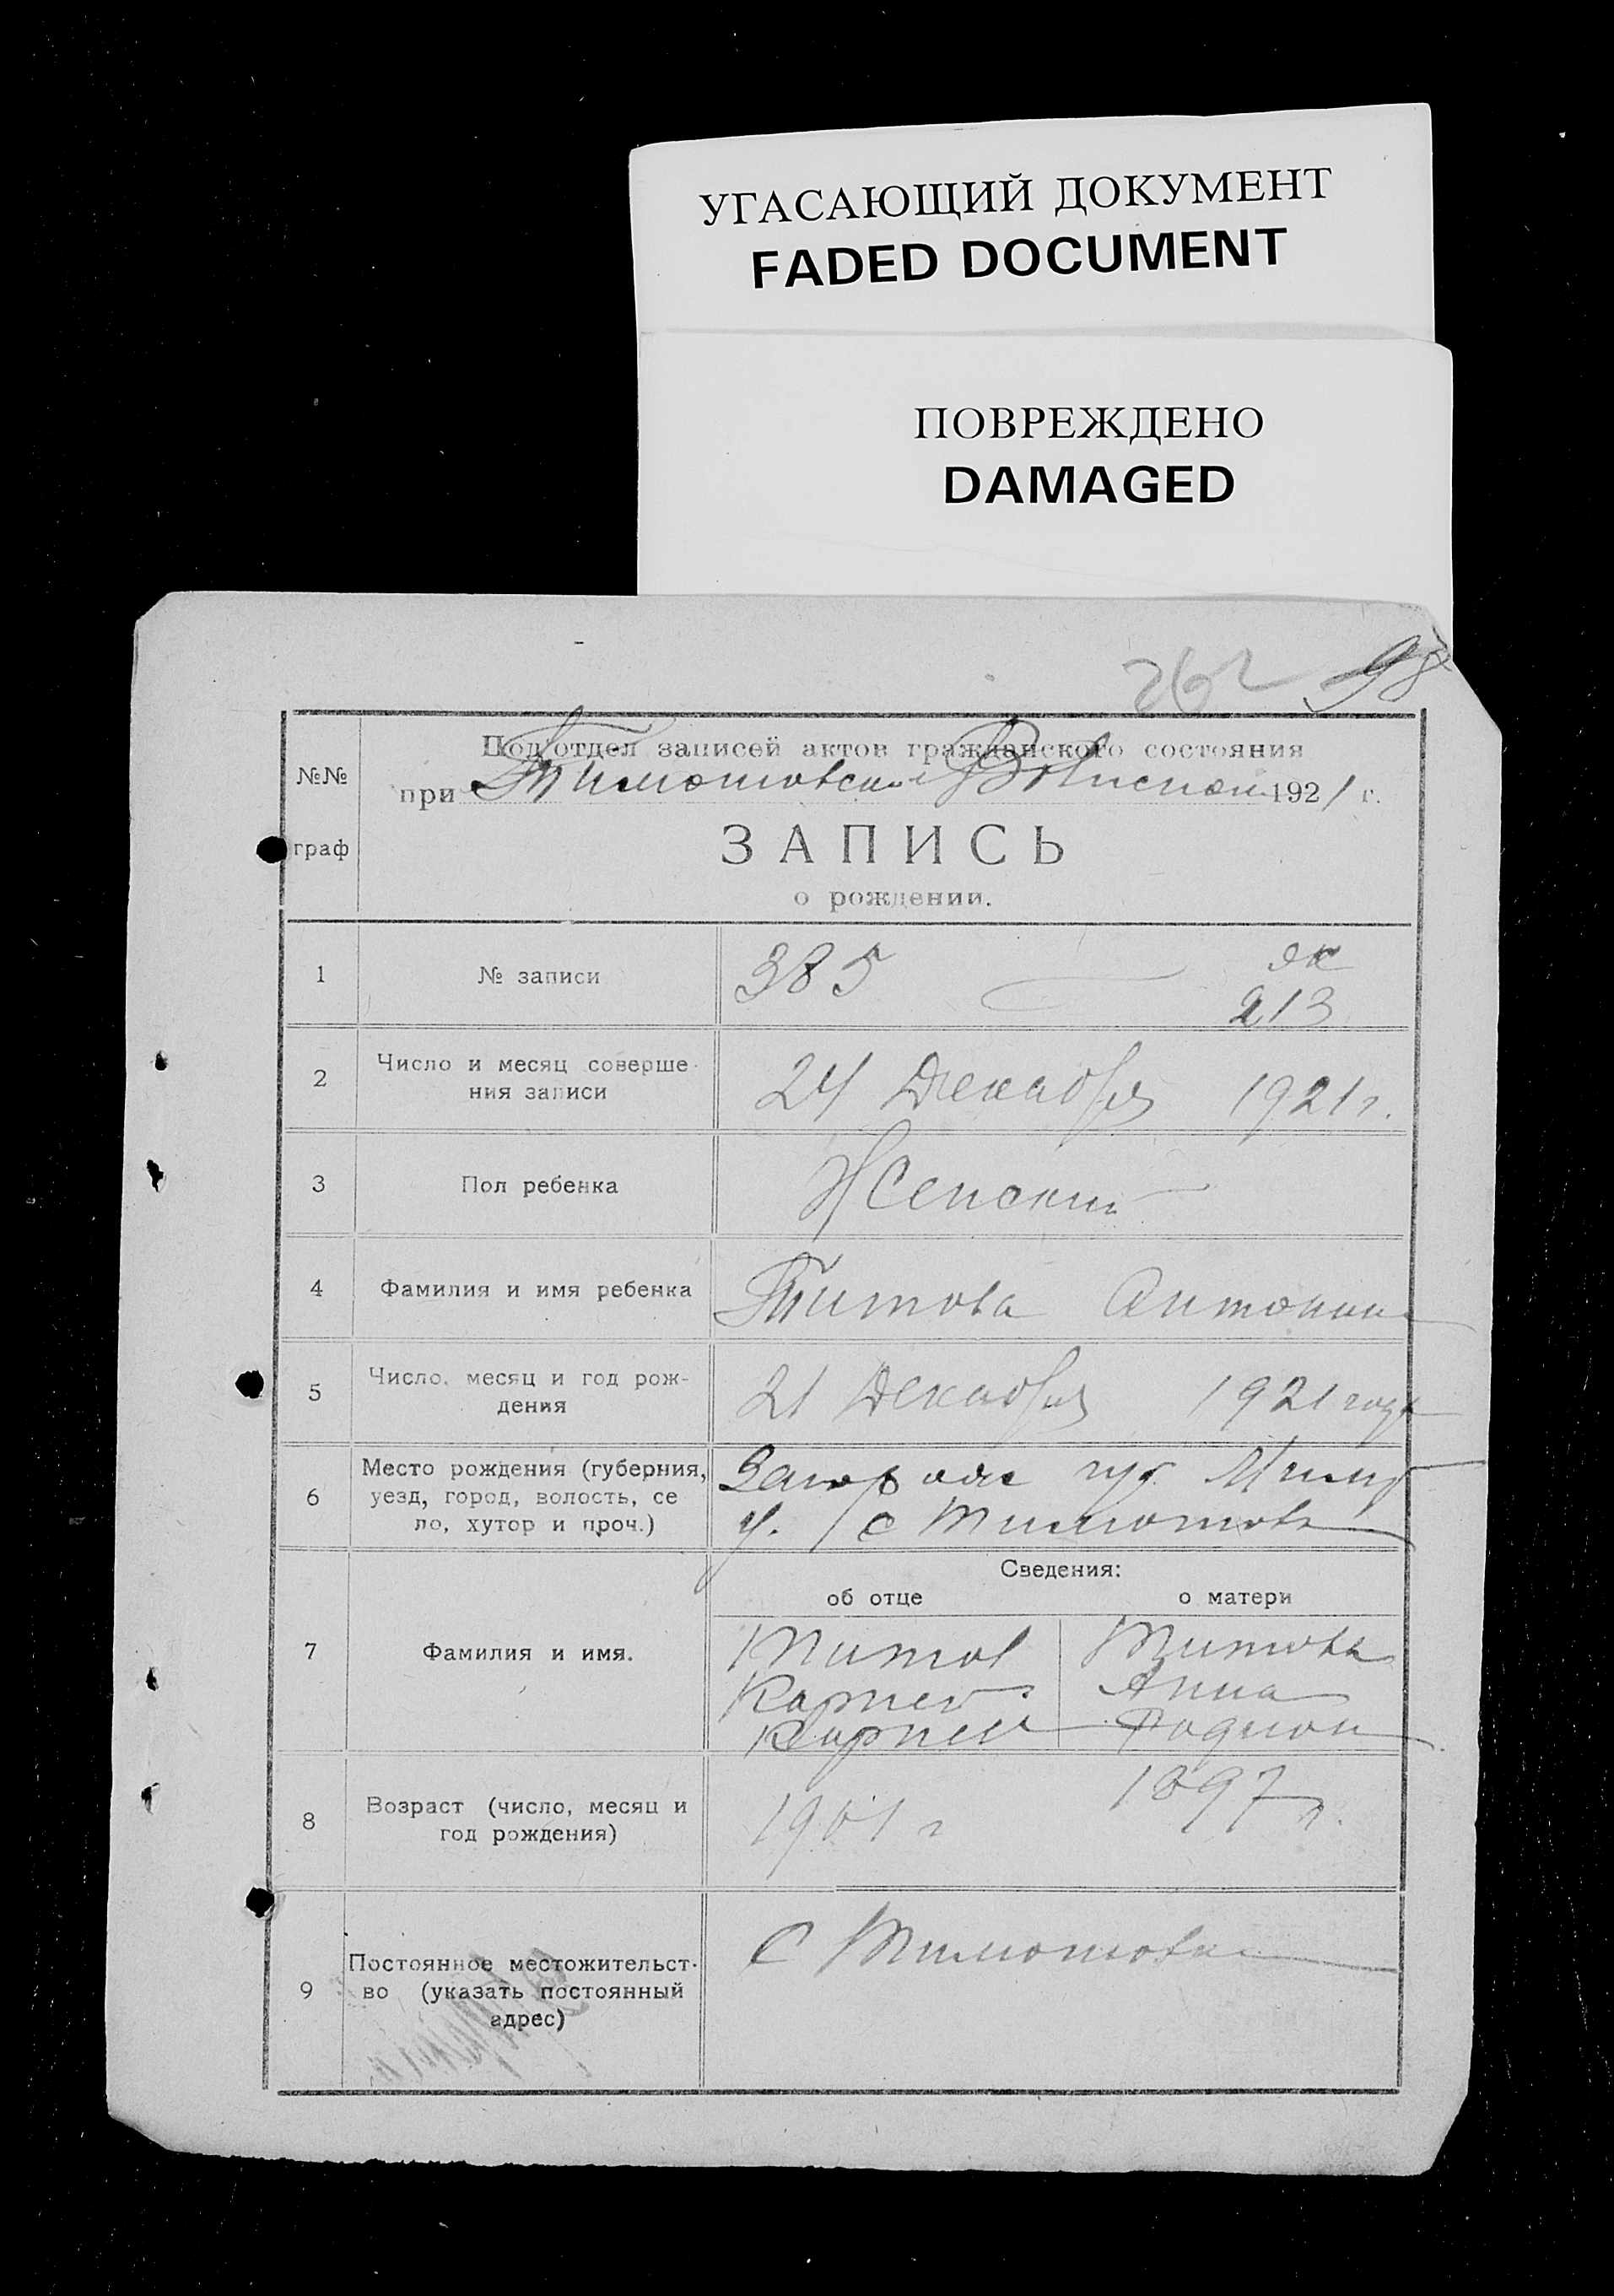 УГАСАЮЩИЙ ДОКУМЕНТ
FADED DOCUMENT
ПОВРЕЖДЕНО
DAMAGED
262 98
№№
граф
Под'отдел записей актов гражданского состояния
при Тимошовской 1921 г.
ЗАПИСЬ
о рождении.
1 № записи 385
213
2 Число и месяц соверше-
ния записи
24 Декабря 1921 г.
3 Пол ребенка Женский
4 Фамилия и имя ребенка Титова Антонина
5 Число, месяц и год рож-
дения
21 Декабря 1921 года
6 Место рождения (губерния,
уезд, город, волость, се
ло, хутор и проч.)
губ.
у. с Тимошовка
Сведения:
об отце о матери
7 Фамилия и имя.
Титов Титова
Карпей Анна
Родион
8 Возраст (число, месяц и
год рождения)
1901 г 1897 г.
9 Постоянное местожительст-
во (указать постоянный
адрес)
С Тимошовка